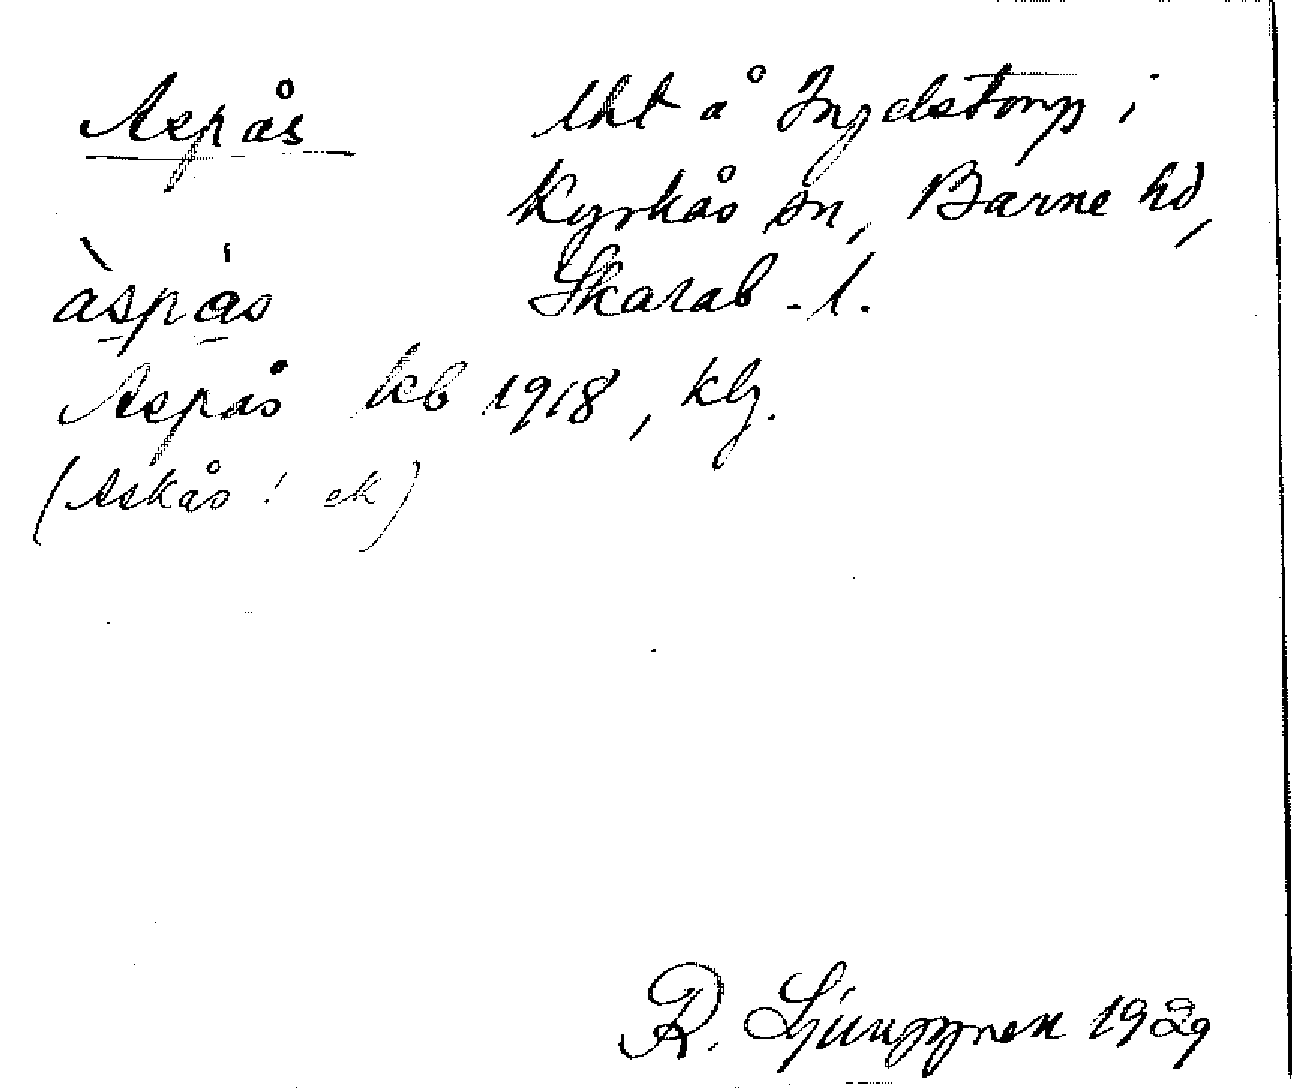 Aspås lht å Ingelstorp i
Kyrkås sn, Barne hd,
àspås Skarab - l.
Aspås kb 1918, klg.
(Askås ! ek)
R. Ljunggren 1929